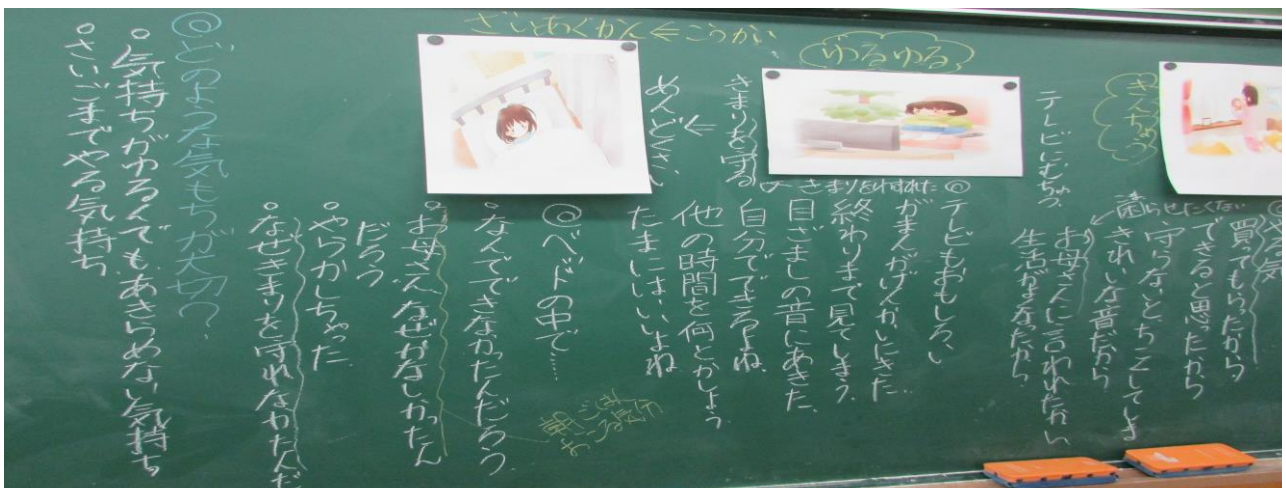 やる気
買ってもらったから
できると思ったから
守らないとちこくしてしま
きれいな音だから
お母さんに言われたから
困らせたくない
きんちょう
テレビにむちゅう
ゆるゆる
◎きまりをわすれた
テレビもおもしろい
がまんがげんかいにきた…
終わりまで見てしまう
目ざましの音にあきた
自分でできるよね
他の時間を何とかしよう
たまにはいいよね
きまりを守る
めんどくさい
ざいあくかん⇐こうかい
◎ベッドの中で……
・なんでできなかったんだろう
・お母さん、なぜかなしかったん
だろう
・やらかしちゃった
・なぜきまりを守れなかたんだ
◎どのような気もちが大切？
・気持ちがゆるくても、あきらめない気持ち
・さいごまでやる気持ち